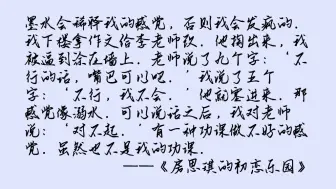 墨水会稀释我的感觉，否则我会发疯的．
我下楼拿作文给李老师改．他掏出来，我
被逼到涂在墙上．老师说了九个字：‘不
行的话，嘴巴可以吧．’我说了五个
字：‘不行，我不会．’他就塞进来．那
感觉像溺水．可以说话之后，我对老师
说：‘对不起．’有一种功课做不好的感
觉．虽然也不是我的功课．
——《房思琪的初恋乐园》